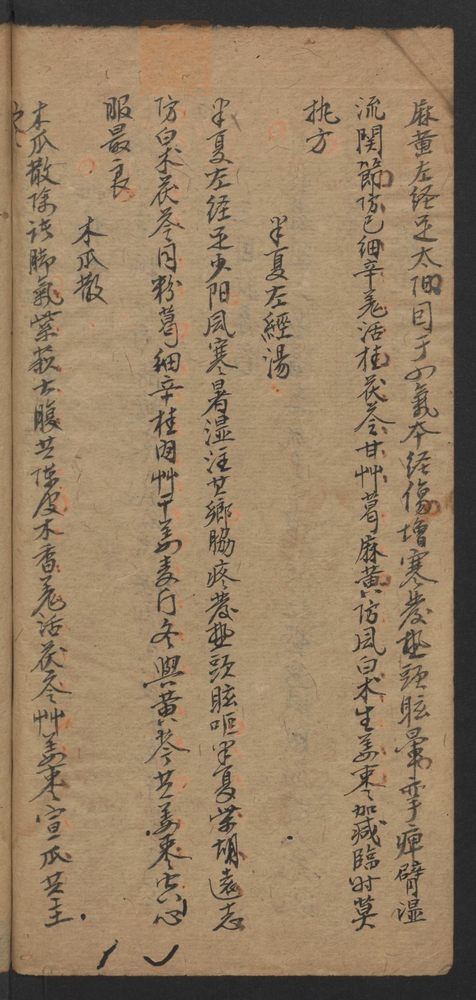 麻黄左经足太阳因于四氣本经傷增寒发热頭眩暈挛痺臂湿
流関節防己细辛羌活桂茯苓甘艸葛麻黄防风白术生姜枣加减臨时莫
执方
半夏左經湯
半夏左经足少阳风寒暑湿注其鄉脇疼发热頭眩呕半夏柴胡遠志
防白术茯苓同粉葛细辛桂肉艸干姜麦门冬與黄芩共姜枣空心
服最良
木瓜散
木瓜散除诸脚氣紫蘇大腹共陈皮木香羌活茯苓艸姜枣宣瓜共主